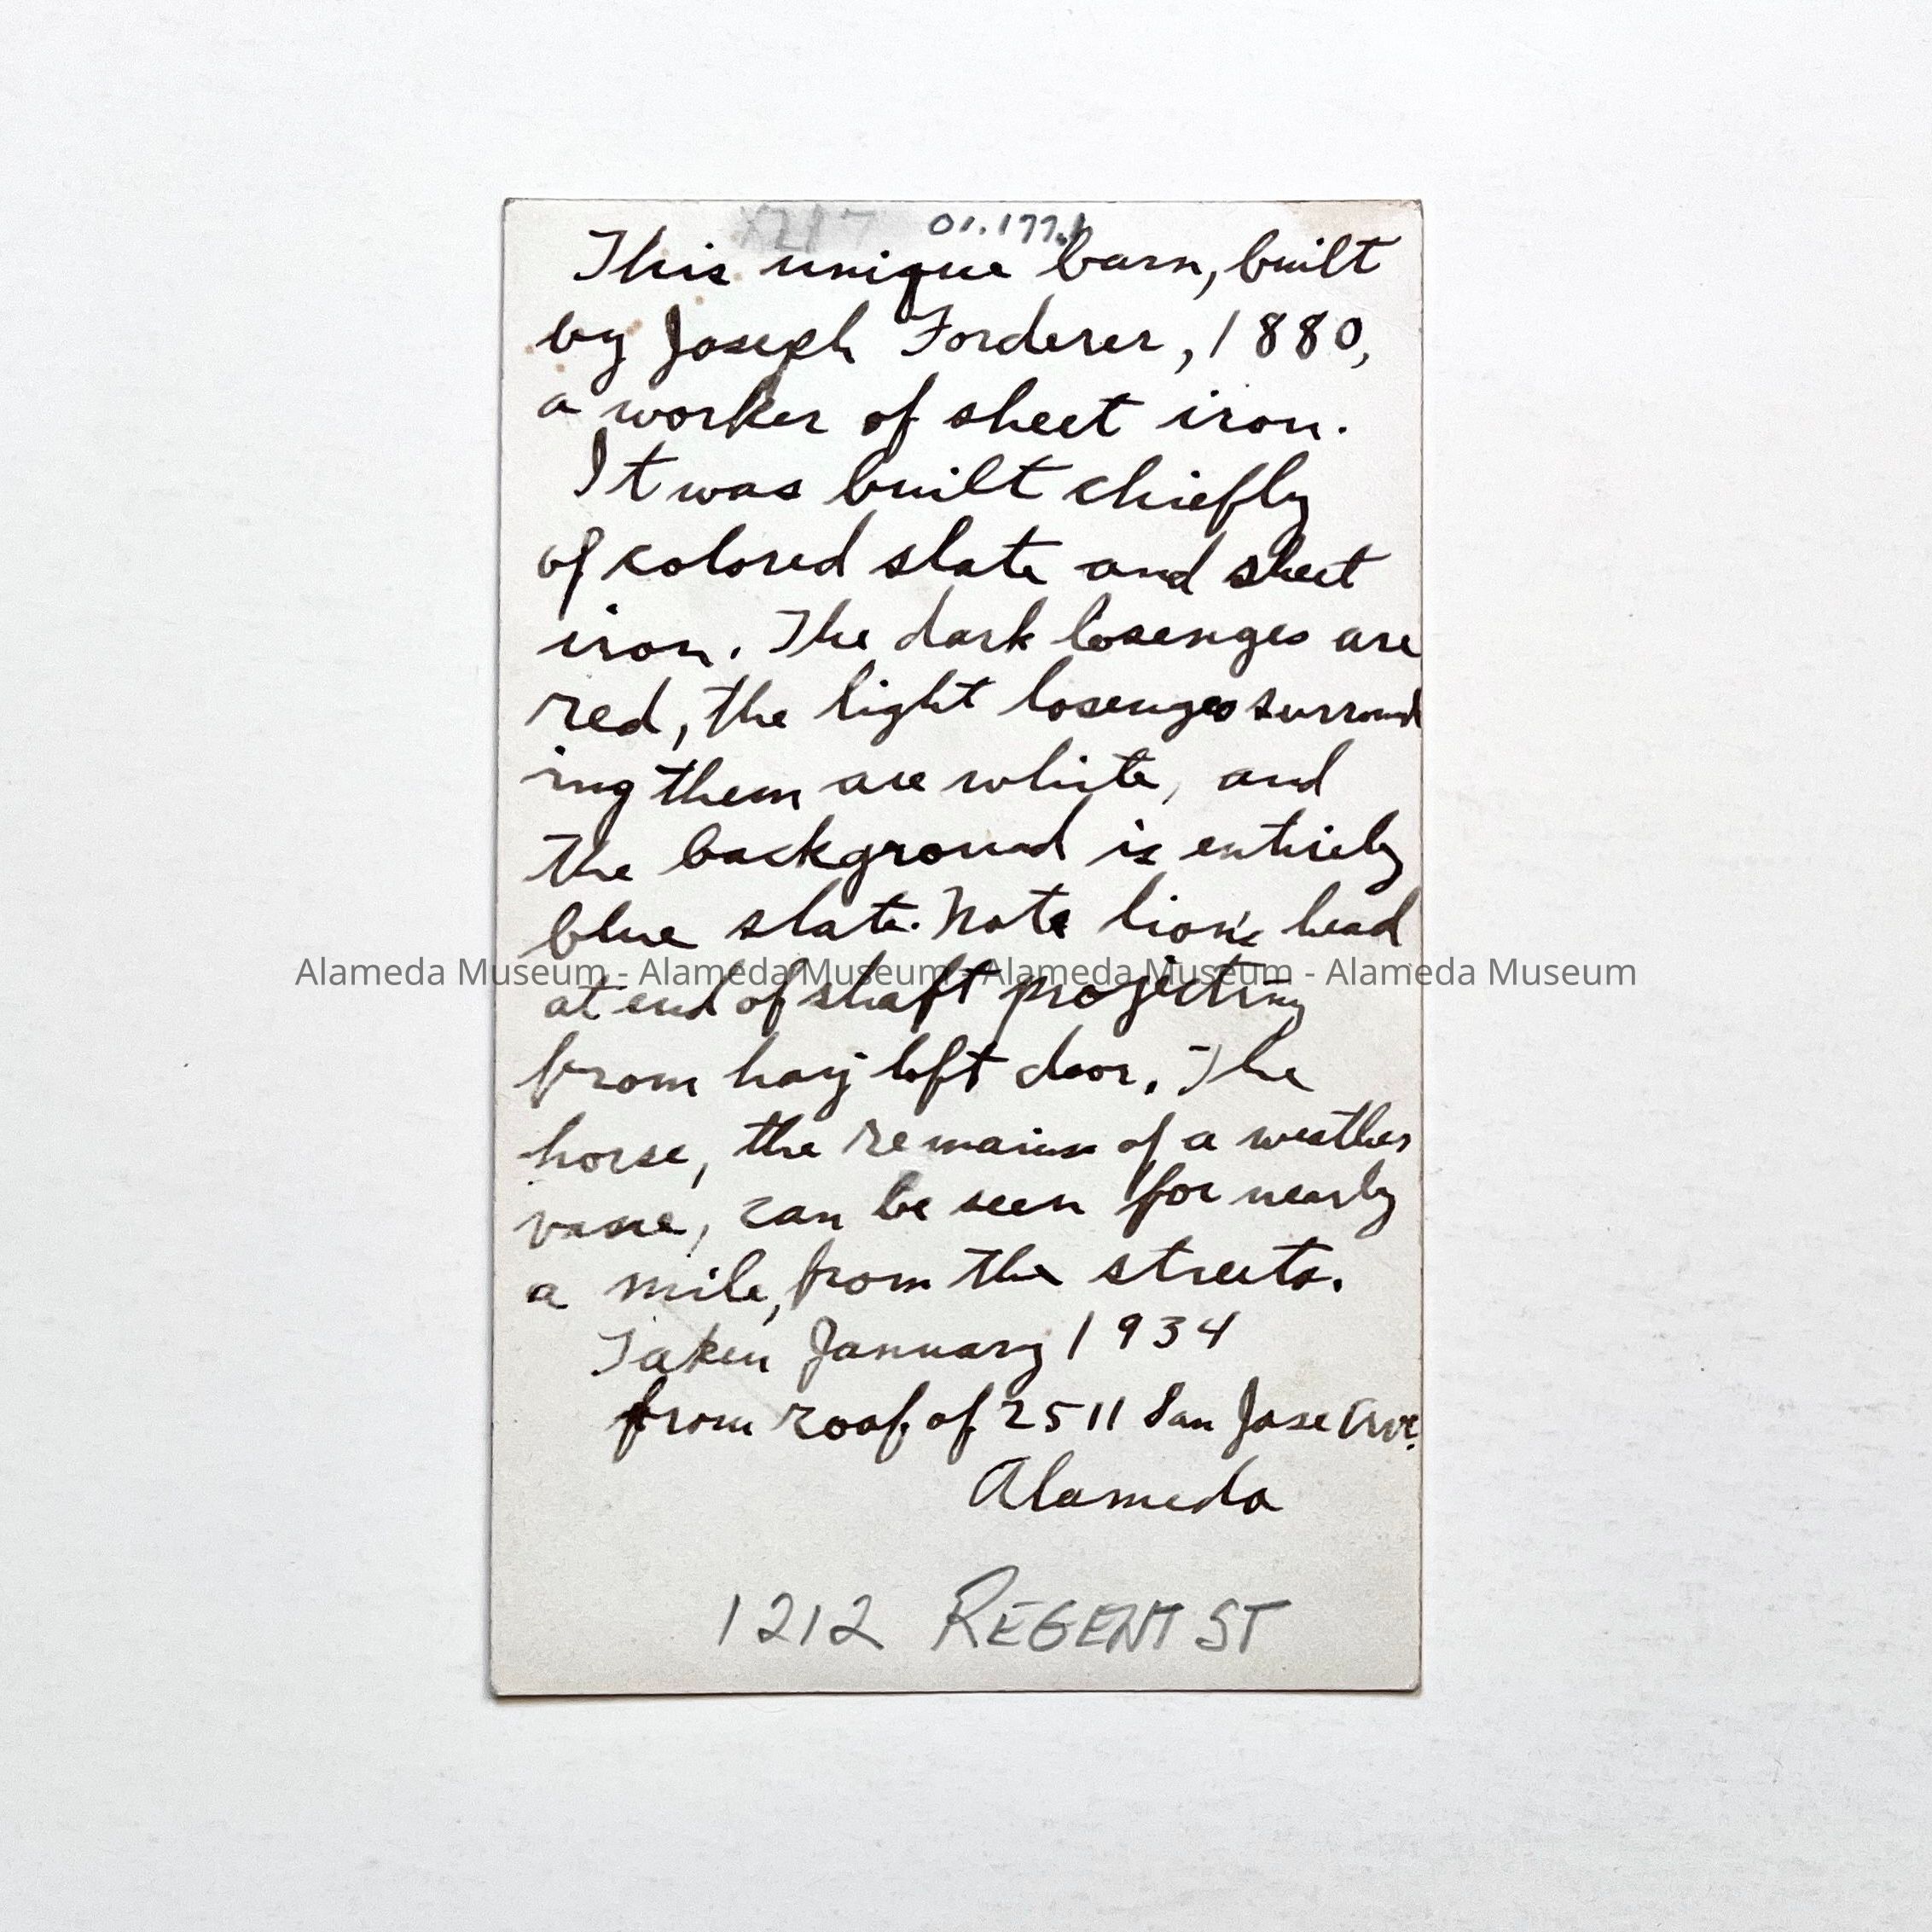 01.177.1
This unique barn, built
by Joseph Forderer, 1880,
a worker of sheet iron.
It was built chiefly
of colored slate and sheet
iron. The dark losenges are
red, the light losenges surround
ing them are white, and
the background is entirely
blue slate. Note lion's head
Alameda Museum - Alameda Museum - Alameda Museum - Alameda Museum
at end of shaft projecting
from hay loft door. The
horse, the remains of a weather
vane, can be seen for nearly
a mile, from the streets.
Taken January 1934
from roof of 2511 San Jose Ave.
Alameda
1212 REGENT ST